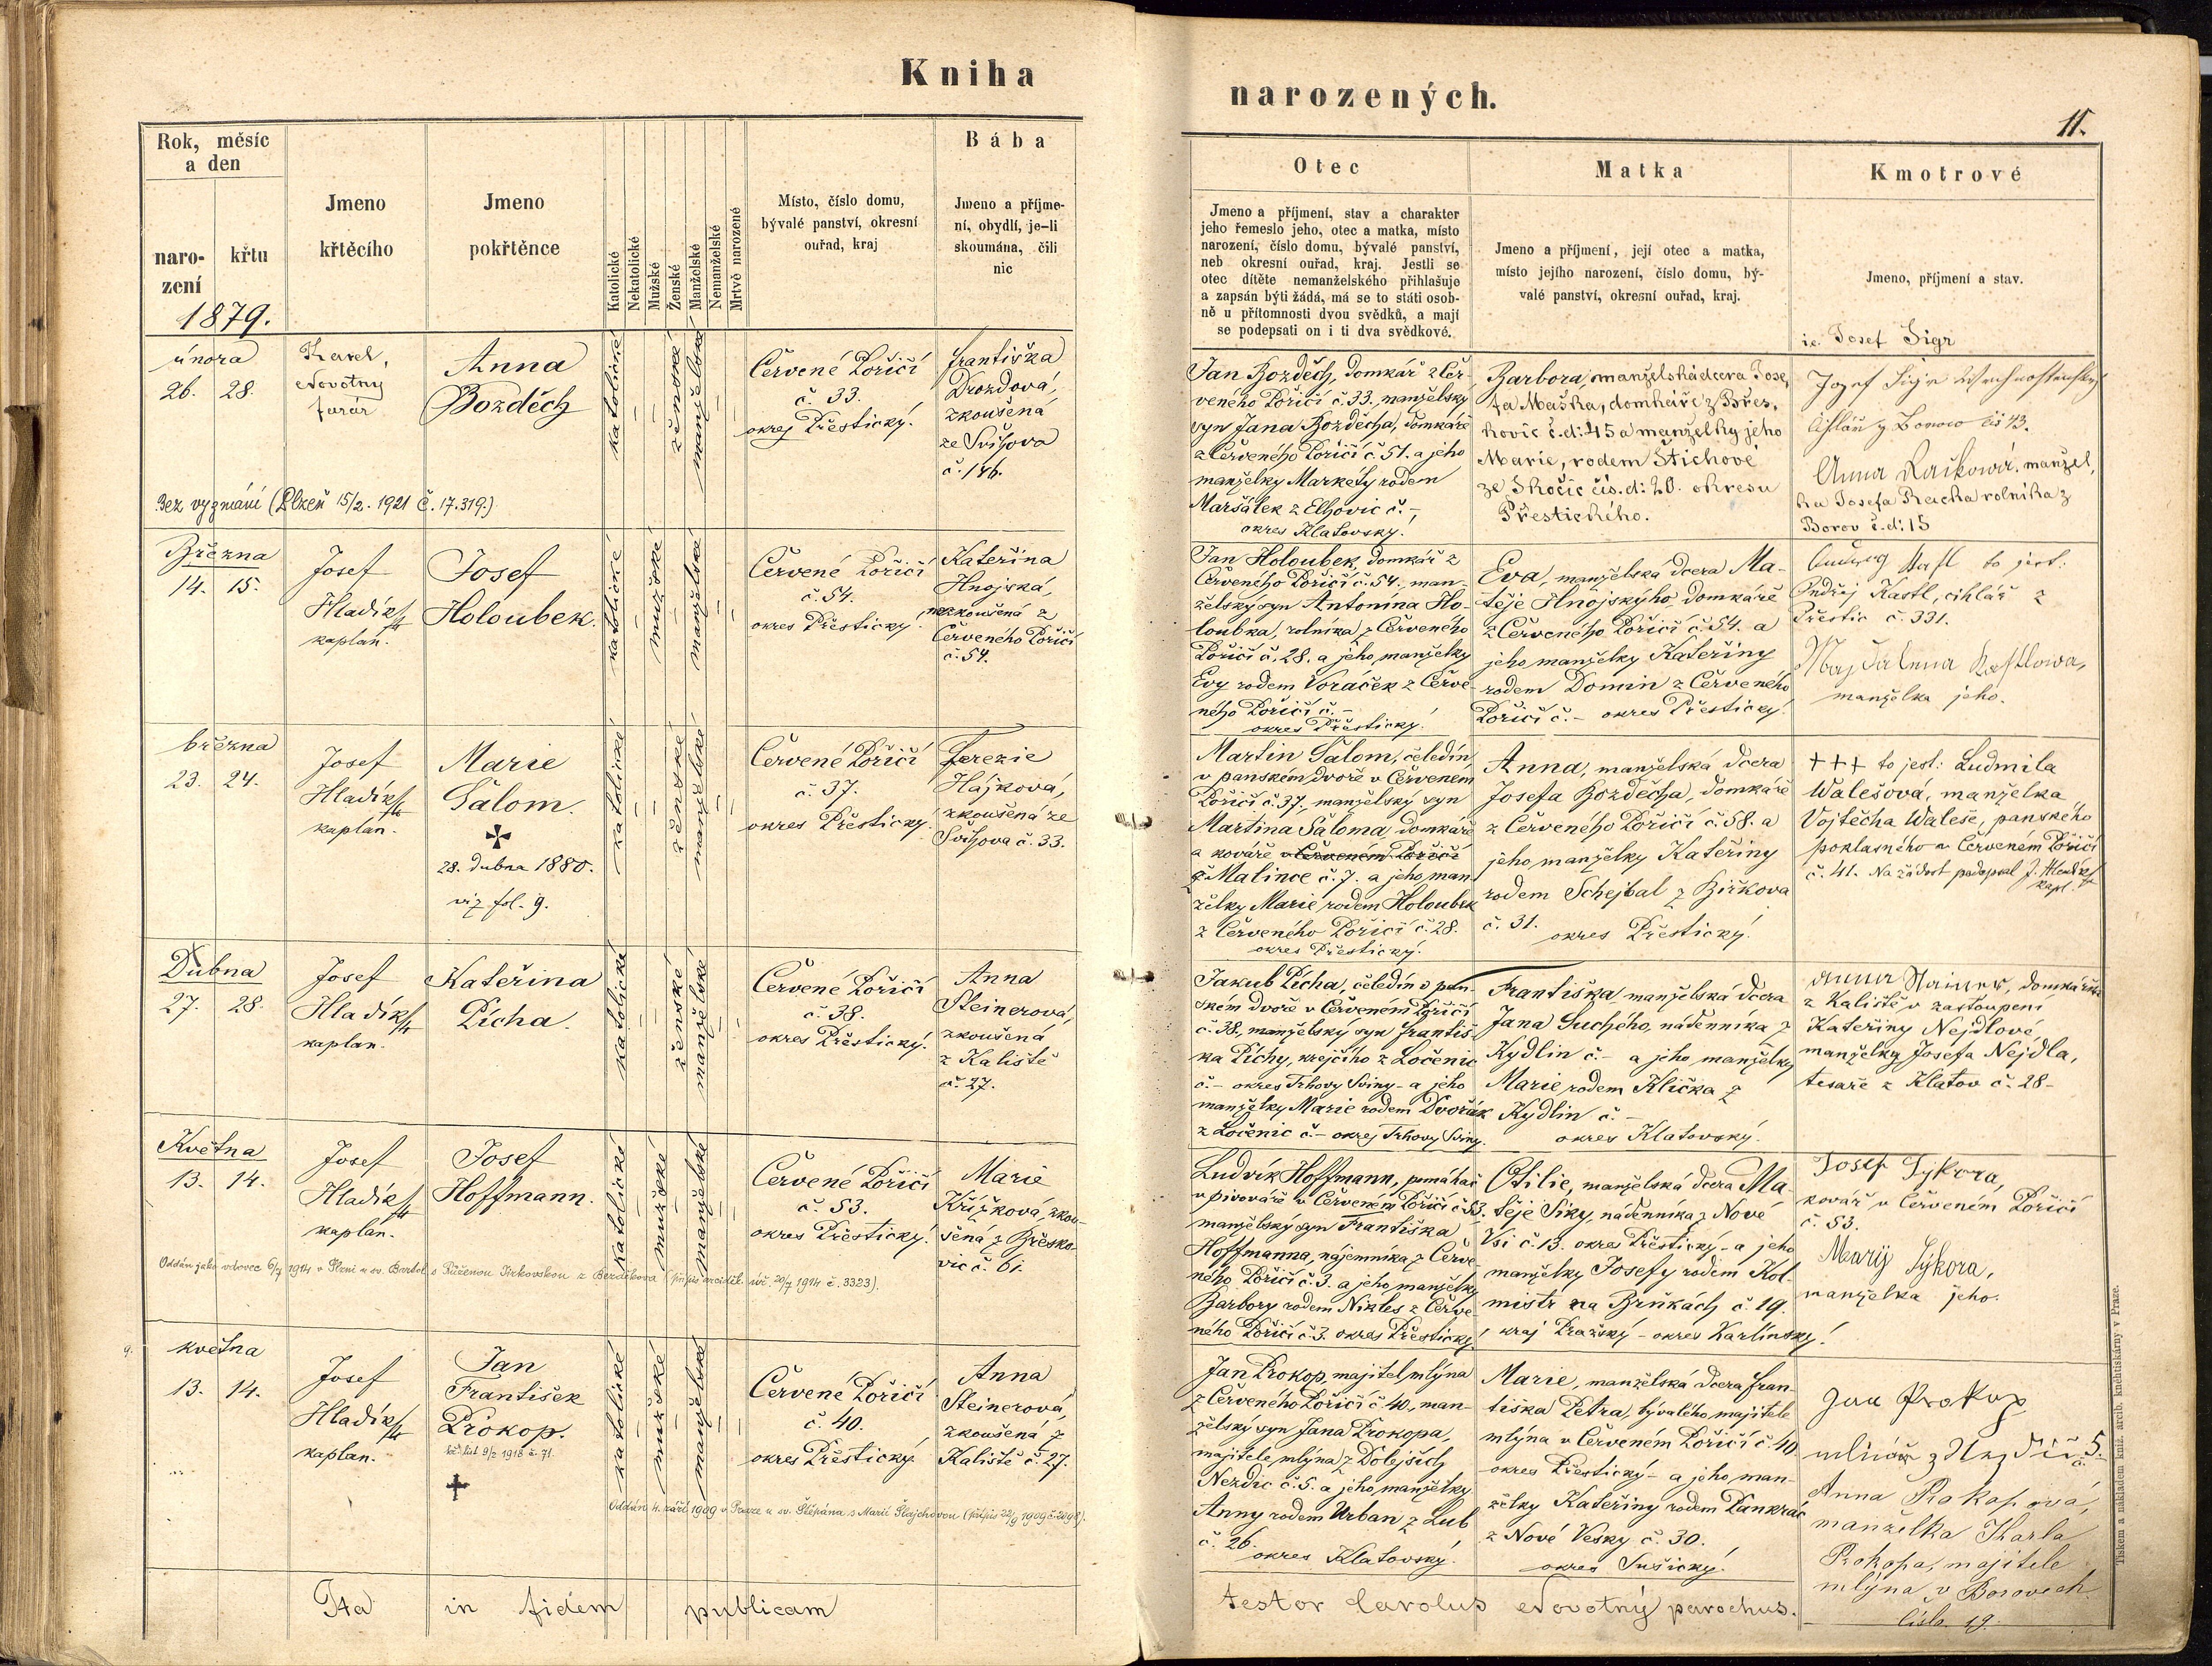 Kniha
narozených.
11.
Rok, měsíc
a den
naro-
zení
křtu
1879.
Jmeno
křtěcího
Jmeno
pokřtěnce
Katolické
Nekatolické
Mužské
Ženské
Manželské
Nemanželské
Mrtvě narozené
Místo, číslo domu,
bývalé panství, okresní
ouřad, kraj
Bába
Jmeno a příjme-
ní, obydlí, je-li
skoumána, čili
nic
Otec
Jmeno a příjmení, stav a charakter
jeho řemeslo jeho, otec a matka, místo
narození, číslo domu, bývalé panství,
neb okresní ouřad, kraj. Jestli se
otec dítěte nemanželského přihlašuje
a zapsán býti žádá, má se to státi osob-
ně u přítomnosti dvou svědků, a mají
se podepsati on i ti dva svědkové.
Matka
Jmeno a příjmení, její otec a matka,
místo jejího narození, číslo domu, bý-
valé panství, okresní ouřad, kraj.
Kmotrové
Jmeno, příjmení a stav.
února
26. 28.
Karel
Novotný
farář
Anna
Bozděch
katolické
ženské
manželské
Červené Poříčí
č. 33.
okres Přestický.
Františka
Drozdová,
zkoušená
ze Švihova
č. 146.
Bez vyznání (Plzeň 15/2. 1921 č. 17.319.)
Jan Bozděch, domkář z Čer-
veného Poříčí č. 33, manželský
syn Jana Bozděcha, domkáře
z Červeného Poříčí č. 51. a jeho
manželky Markety rodem
Maršálek z Elhovic č. -,
okres Klatovský.
Barbora, manželská dcera Jose-
fa Maška, domkáře z Břes-
kovic č.d: 45 a manželky jeho
Marie, rodem Štichové
ze Skočic čís.d: 20. okresu
Přestického.
Josef Sigr
Josef Sigr
z Borov čís 43.
Anna Račkowá, manžel-
ka Josefa rolníka z
Borov č.d: 15
Března
14. 15.
Josef
Hladík
kaplan.
Josef
Holoubek.
katolické
mužské
manželské
Červené Poříčí
č. 54.
okres Přestický.
Kateřina
Hnojská,
nezkoušená z
Červeného Poříčí
č. 54.
Jan Holoubek, domkář z
Červeného Poříčí č. 54., man-
želský syn Antonína Ho-
loubka, rolníka z Červeného
Poříčí č. 28. a jeho manželky
Evy rodem Voráček z Červe-
ného Poříčí č. -
okres Přestický.
Eva, manželská dcera Ma-
těje Hnojskýho, domkáře
z Červeného Poříčí č. 54. a
jeho manželky Kateřiny
rodem Domin z Červeného
Poříčí č. - okres Přestický.
to jest:
Ondřej Kastl, cihlář z
Přestic č. 331.
Kastlowa,
manželka jeho.
března
23. 24.
Josef
Hladík
kaplan.
Marie
Šalom.
28. dubna 1880.
viz fol. 9.
katolické
ženské
manželské
Červené Poříčí
č. 37.
okres Přestický.
Terezie
Hájková,
zkoušená ze
Švihova č. 33.
Martin Šalom, čeledín
v panském dvoře v Červeném
Poříčí č. 37, manželský syn
Martina Šaloma, domkáře
a kováře v Červeném Poříčí
z Malince č. 7. a jeho man-
želky Marie rodem Holoubek
z Červeného Poříčí č. 28.
okres Přestický.
Anna, manželská dcera
Josefa Bozděcha, domkáře
z Červeného Poříčí č. 58. a
jeho manželky Kateřiny
rodem Schejbal z Biřkova
č. 31.
okres Přestický.
+++ to jest: Ludmila
Walešová, manželka
Vojtěcha Waleše, panského
poklasného v Červeném Poříčí
č. 41. Na žádost podepsal J. Hladík
kapl.
Dubna
27. 28.
Josef
Hladík
kaplan.
Kateřina
Pícha.
katolické
ženské
manželské
Červené Poříčí
č. 38.
okres Přestický.
Anna
Steinerová,
zkoušená
z Kaliště
č. 27.
Jakub Pícha, čeledín v pan-
ském dvoře v Červeném Poříčí
č. 38. manželský syn Františ-
ka Píchy, krejčího z Ločenic
č. - okres Trhovy Sviny - a jeho
manželky Marie rodem Dvořák
z Ločenic č. - okres Trhovy Sviny.
Františka manželská dcera
Jana Suchého, nádenníka z
Kydlin č. - a jeho manželky
Marie rodem Klička z
Kydlin č. -
okres Klatovský.
Anna Stainer, domkářka
z Kaliště v zastoupení
Kateřiny Nejdlové
manželky Josefa Nejdla,
tesaře z Klatov č. 28 -
Května
13. 14.
Josef
Hladík
kaplan.
Josef
Hoffmann.
katolické
mužské
manželské
Červené Poříčí
č. 53.
okres Přestický.
Marie
Křížková, zkou-
šená z Břesko-
vic č. 61.
Oddán jako vdovec 6/7 1914 v Plzni u sv. Bartol. s Růženou Jirkovskou z Bezděkova 20/7 1914 č. 3323).
Ludvík Hoffmann, pomáhač
v pivováře v Červeném Poříčí č. 53.
manželský syn Františka
Hoffmanna, nájemníka z Červe-
ného Poříčí č. 3. a jeho manželky
Barbory rodem Nikles z Červe-
ného Poříčí č. 3. okres Přestický.
Otilie, manželská dcera Ma-
těje Siky, nádenníka z Nové
Vsi č. 13. okres Přestický - a jeho
manželky Josefy rodem Kol-
mistr na Brnkách č. 19.
kraj Pražský - okres Karlínský.
Josef Sýkora,
kovář v Červeném Poříčí
č. 53.
Marij Sýkora,
manželka jeho.
května
13. 14.
Josef
Hladík
kaplan.
Jan
František
Prokop.
kř. list 9/2 1918 č. 71.
katolické
mužské
manželské
Červené Poříčí
č. 40.
okres Přestický.
Anna
Steinerová,
zkoušená z
Kaliště č. 27.
Oddán 4. září 1909 v Praze u sv. Štěpána s Marií Šlajchovou (přípis 22/9 1909 č. 2098).
Jan Prokop, majitel mlýna
z Červeného Poříčí č. 40, man-
želský syn Jana Prokopa,
majitele mlýna z Dolejších
Nezdic č. 5. a jeho manželky
Anny rodem Urban z Lub
č. 26.
okres Klatovský.
Marie, manželská dcera Fran-
tiška Petra, bývalého majitele
mlýna v Červeném Poříčí č. 40.
okres Přestický - a jeho man-
želky Kateřiny rodem Pankrác
z Nové Vesky č. 30.
okres Sušický.
Jan Prokop
mlinář z Nezdic č. 5.
Anna Prokopová,
manželka Karla
Prokopa, majitele
mlýna v Borovech
číslo 19.
Ita in fidem publicam
testor Carolus Novotný parochus.
Tiskem a nákladem kníž. arcib. knihtiskárny v Praze.